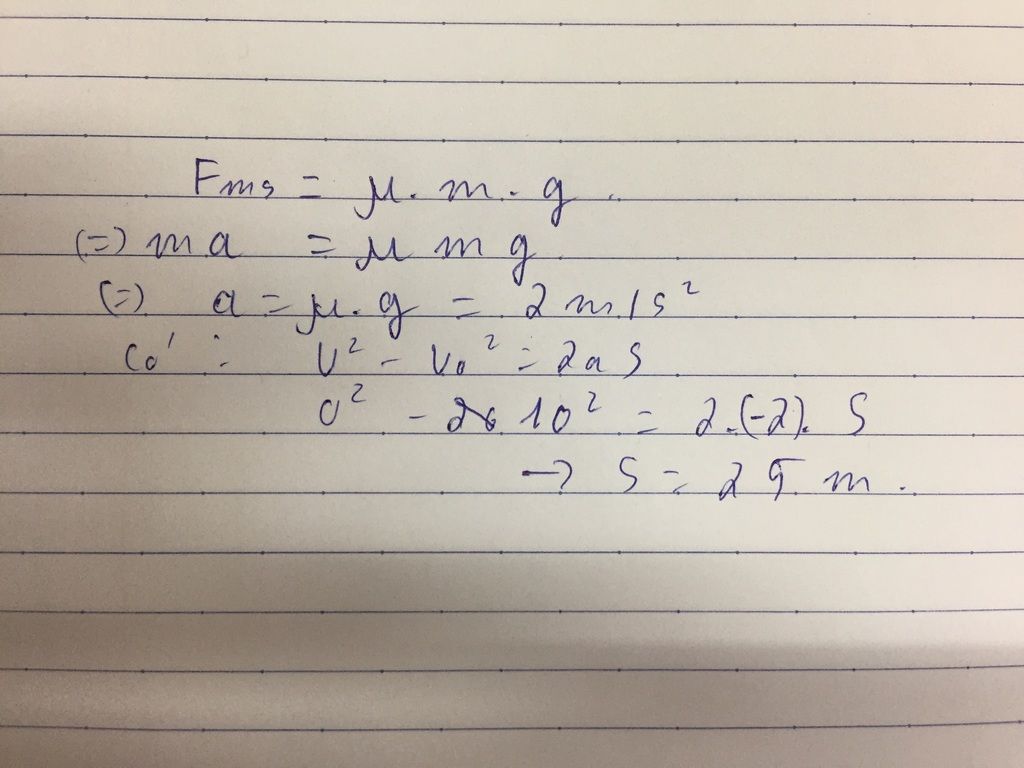 Fms = μ. m. g.
(=) ma = μ m g
(=) a = μ. g = 2 m/s²
Có : V² - V₀² = 2a S
0² - 10² = 2.(-2). S
→ S = 25 m.